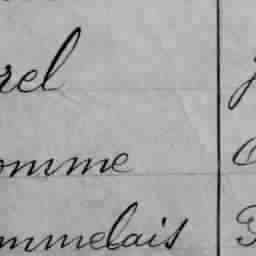 rel
omme
mmelais